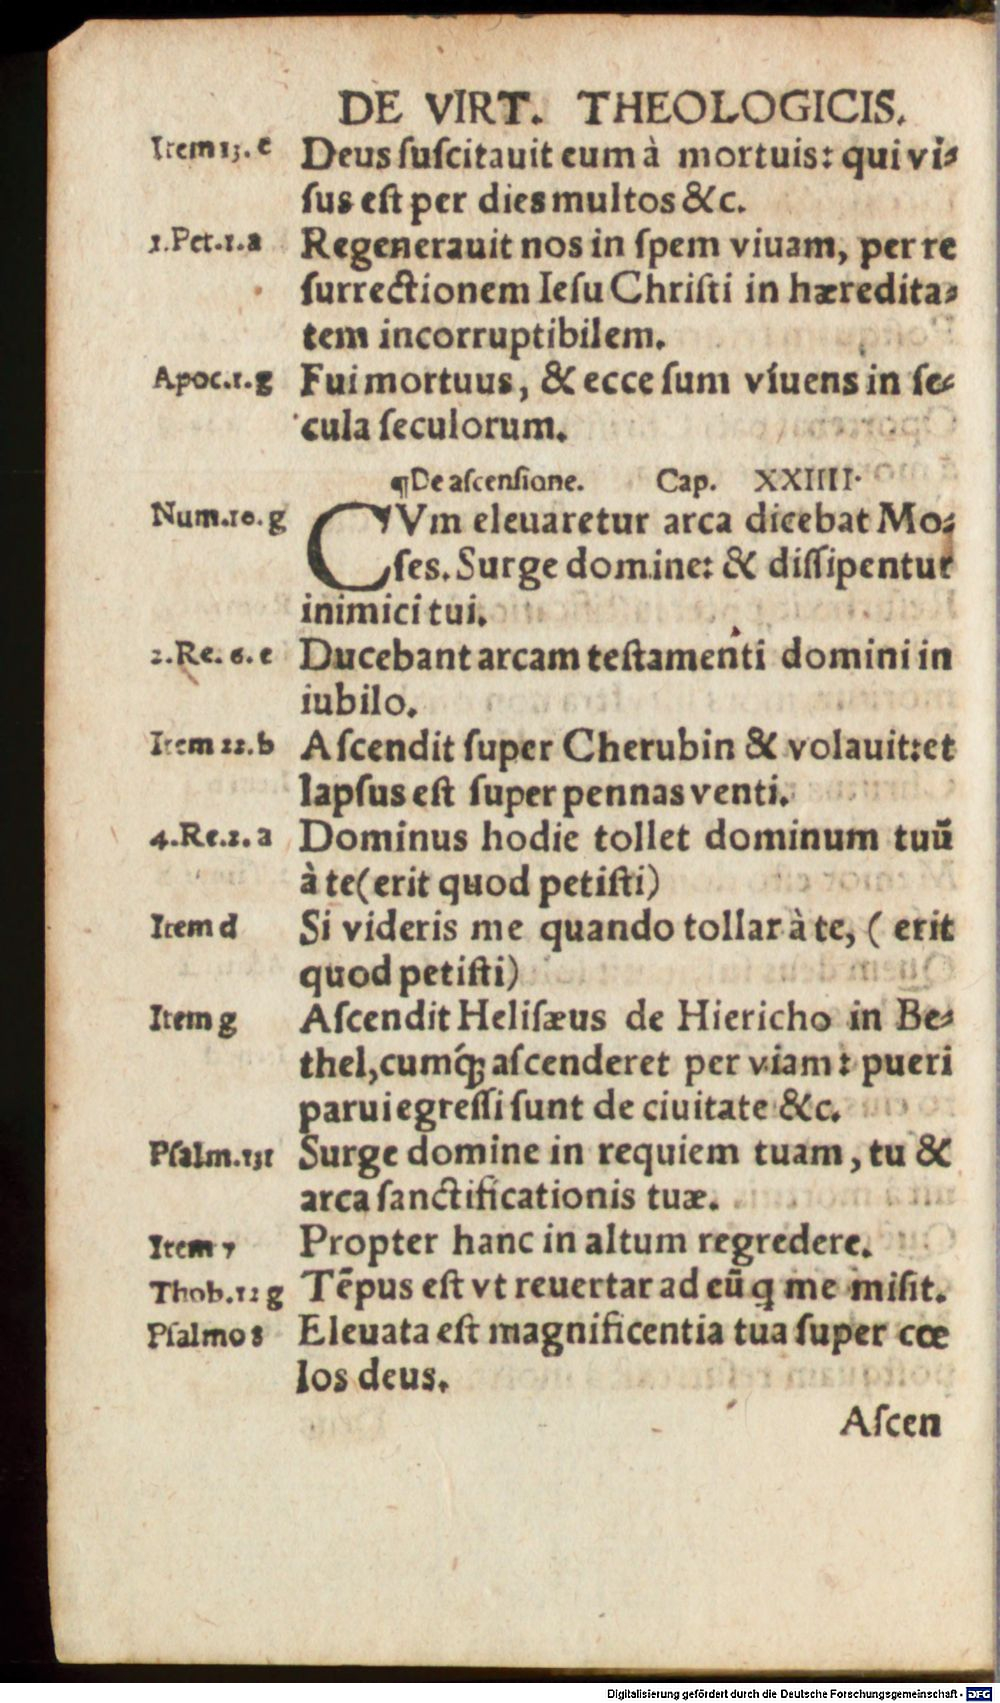 DE VIRT. THEOLOGICIS.
Item 13. e Deus ſuſcitauit eum à mortuis: qui vi⸗
ſus eſt per dies multos &c.
1.Pet.1.a Regenerauit nos in ſpem viuam, per re
ſurrectionem Ieſu Chriſti in hæredita⸗
tem incorruptibilem.
Apoc.1.g Fui mortuus, & ecce ſum viuens in ſe⸗
cula ſeculorum.
¶De aſcenſione. Cap. XXIIII.
Num.10.g CVm eleuaretur arca dicebat Mo⸗
ſes. Surge domine: & diſſipentur
inimici tui.
2.Re.6.e Ducebant arcam teſtamenti domini in
iubilo.
Item 22.b Aſcendit ſuper Cherubin & volauit: et
lapſus eſt ſuper pennas venti.
4.Re.2.a Dominus hodie tollet dominum tuū
à te(erit quod petiſti)
Item d Si videris me quando tollar à te, ( erit
quod petiſti)
Item g Aſcendit Heliſæus de Hiericho in Be⸗
thel, cumq́; aſcenderet per viam: pueri
parui egreſſi ſunt de ciuitate &c.
Pſalm.131 Surge domine in requiem tuam, tu &
arca ſanctificationis tuæ.
Item 7 Propter hanc in altum regredere.
Thob.12 g Tēpus eſt vt reuertar ad eū q me miſit.
Pſalmo 8 Eleuata eſt magnificentia tua ſuper cœ
los deus.
Aſcen
Digitalisierung gefördert durch die Deutsche Forschungsgemeinschaft - DFG